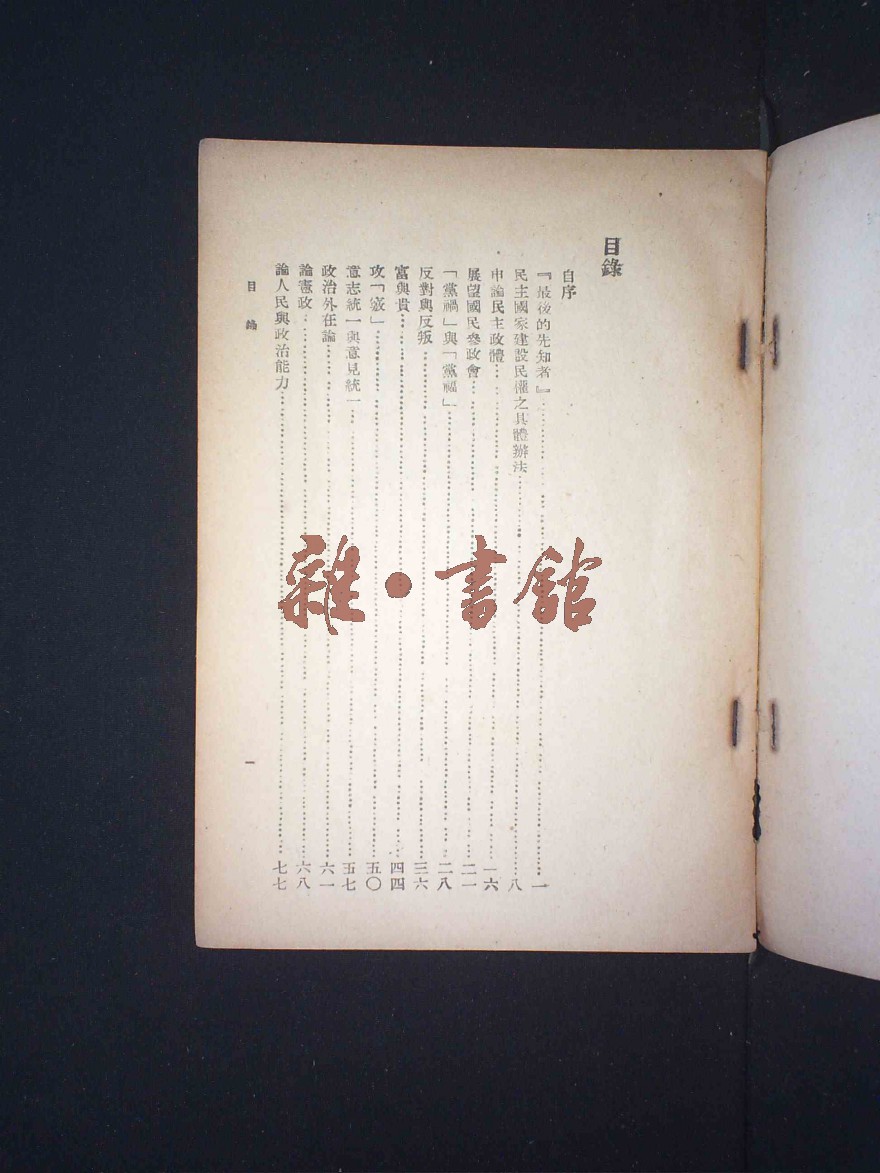 目錄
自序
『最後的先知者』…………一
民主國家建設民權之具體辦法…………八
申論民主政體…………一六
展望國民參政會…………二一
「黨禍」與「黨福」…………二八
反對與反叛…………三六
富與貴…………四四
攻「竅」…………五〇
意志統一與意見統一…………五七
政治外在論…………六一
論憲政…………六八
論人民與政治能力…………七七
目錄
一
雜·書館